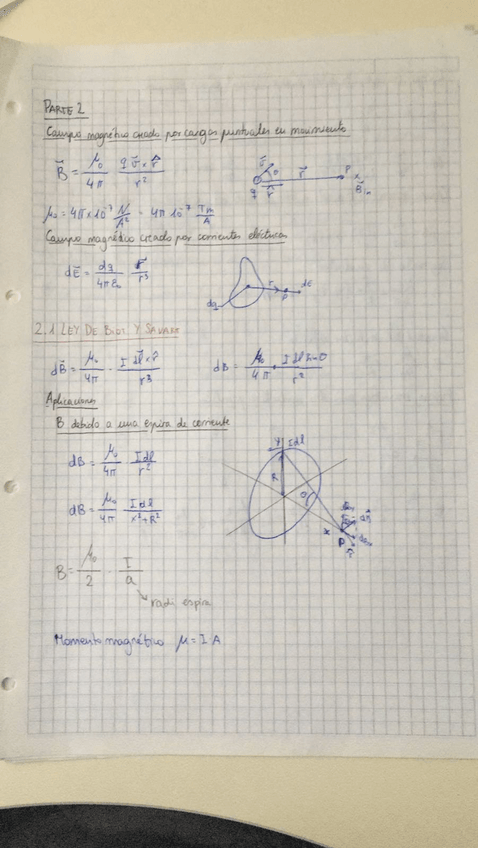 PARTE 2
Campo magnético creado por cargas puntuales en movimiento
B⃗ = μ₀/4π · q v⃗ × r̂ / r²
v⃗ θ r⃗ P
q r̂ B⃗
μ₀ = 4π×10⁻⁷ N/A² = 4π 10⁻⁷ Tm/A
Campo magnético creado por corrientes eléctricas
dE⃗ = dq/4πε₀ · r⃗/r³
dq r P dE
2.1 LEY DE BIOT Y SAVART
dB⃗ = μ₀/4π · I dl⃗ × r⃗ / r³
dB = μ₀/4π · I dl sin θ / r²
Aplicaciones
B debido a una espira de corriente
dB = μ₀/4π · I dl / r²
Y Idl
R θ
x P
dB = μ₀/4π · I dl / x²+R²
B = μ₀/2 · I/a
radi espira
Momento magnético μ = I A